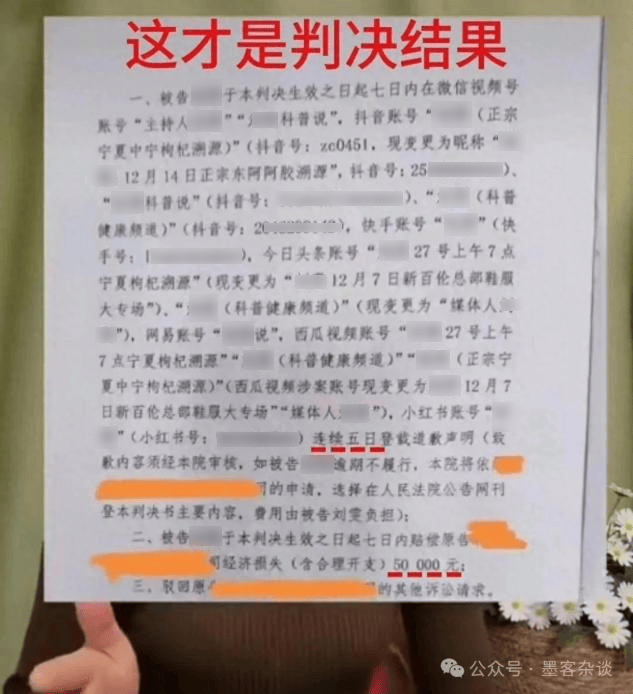 这才是判决结果
一、被告 于本判决生效之日起七日内在微信视频号
账号“主持人 ”“ 科普说”，抖音账号“ （正宗
宁夏中宁枸杞溯源）”（抖音号：zc0451，现变更为昵称“
12月14日正宗东阿阿胶溯源”，抖音号：25 ）、
“ 科普说”（抖音号： ）、“ （科普
健康频道）”（抖音号： ），快手账号“ ”（快
手号： ），今日头条账号“ 27号上午7点
宁夏枸杞溯源”（现变更为“ 12月7日新百伦总部鞋服
大专场”）、“ （科普健康频道）”（现变更为“媒体人
”），网易账号“ 说”，西瓜视频账号“ 27号上午
7点宁夏枸杞溯源”“ （科普健康频道）”“ （正宗宁
夏中宁枸杞溯源）”（西瓜视频涉案账号现变更为 12月7
日新百伦总部鞋服大专场”“媒体人 ”），小红书账号“
”（小红书号： ）连续五日登载道歉声明（致
歉内容须经本院审核，如被告 逾期不履行，本院将依
司的申请，选择在人民法院公告网刊
登本判决书主要内容，费用由被告刘雯负担）；
二、被告 于本判决生效之日起七日内赔偿原告
司经济损失（含合理开支）50 000元；
三、驳回原 的其他诉讼请求。
公众号·墨客杂谈